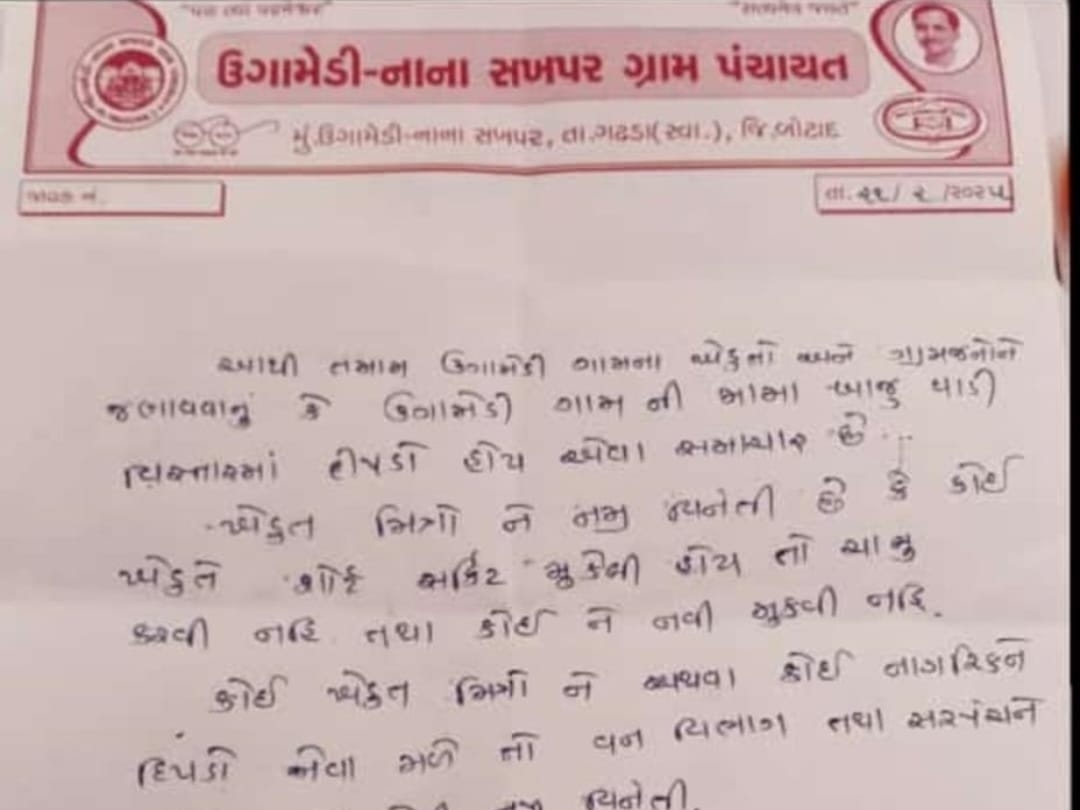 "પંચ ત્યાં પરમેશ્વર" "સત્યમેવ જયતે"
ઉગામેડી-નાના સખપર ગ્રામ પંચાયત
મું.ઉગામેડી-નાના સખપર, તા.ગઢડા(સ્વા.), જિ.બોટાદ
જાવક નં.
તા. ૨૧/ ૨ /૨૦૨૫
આથી તમામ ઉગામેડી ગામના ખેડુતો અને ગ્રામજનોને
જણાવવાનું કે ઉગામેડી ગામ ની બાજુ વાડી
વિસ્તારમાં દીપડો હોય એવા સમાચાર છે.
ખેડુત મિત્રો ને નમ્ર વિનંતી છે કે કોઈ
ખેડુતે શોર્ટ સર્કિટ મુકેલી હોય તો ચાલુ
કરવી નહિ તથા કોઈ ને નવી મુકવી નહિ.
કોઈ ખેડુત મિત્રો ને અથવા કોઈ નાગરિકને
દિપડો જોવા મળે તો વન વિભાગ તથા સરપંચને
નમ્ર વિનંતી.